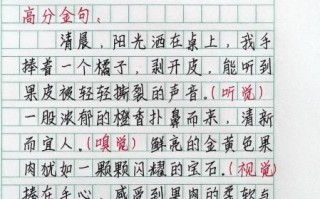 高分金句：
清晨，阳光洒在桌上，我手
捧着一个橘子，剥开皮，能听到
果皮被轻轻撕裂的声音。(听觉)
一股浓郁的橙香扑鼻而来，清新
而宜人。(嗅觉)鲜亮的金黄色果
肉犹如一颗颗闪耀的宝石。(视觉)
捧在手心，感受到果肉的柔软与